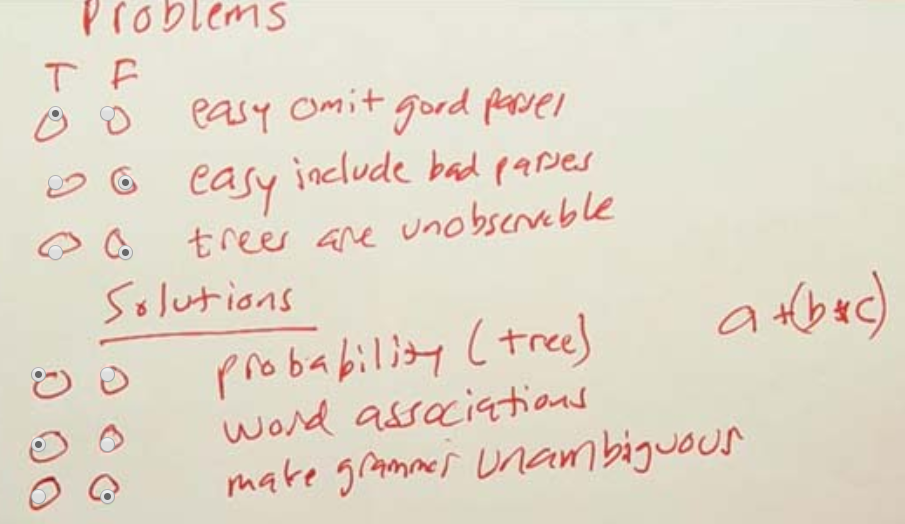 Problems
T F
easy omit good parses
easy include bad parses
trees are unobservable
Solutions
a+(b*c)
probability (tree)
word associations
make grammer unambiguous